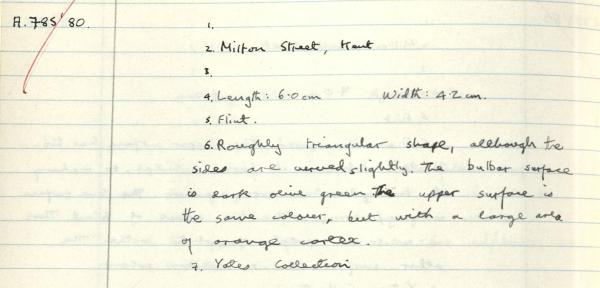 A.785'80.
1.
2. Milton Street, Kent
3.
4. Length: 6.0cm Width: 4.2cm.
5. Flint.
6. Roughly triangular shape, although the
sides are slightly. The bulbar surface
is dark olive green The upper surface is
the same colour, but with a large area
of orange cortex.
7. Yates Collection